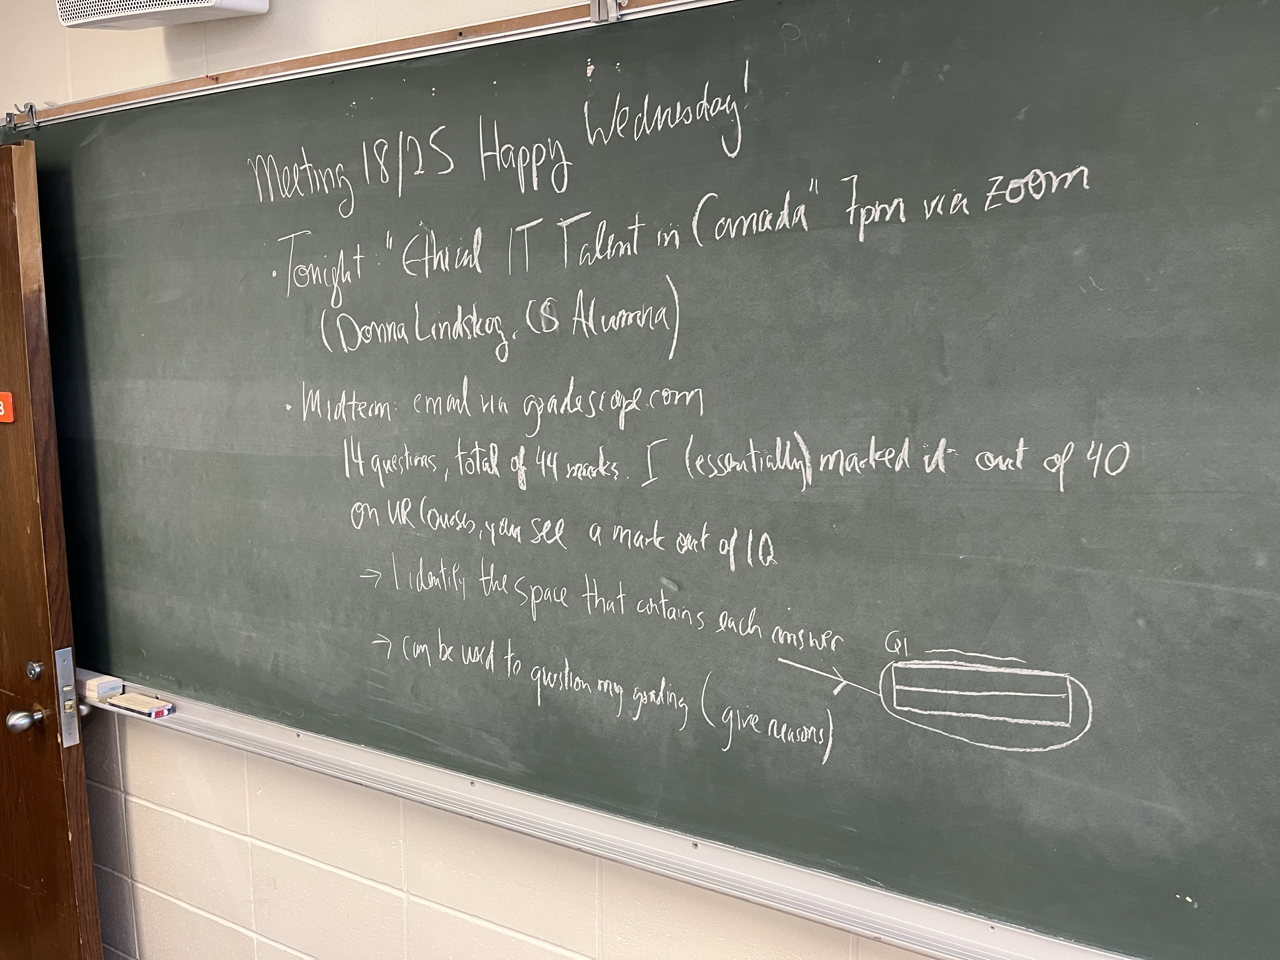 Meeting 18/25 Happy Wednesday!
· Tonight: "Ethical IT Talent in Canada" 7pm via zoom
(Donna Lindskog, CS Alumna)
· Midterm: email via gradescope.com
14 questions, total of 44 marks. I (essentially) marked it out of 40
on UR Courses, you see a mark out of 10
→ I identify the space that contains each answer
Q1
→ can be used to question my grading (give reasons)